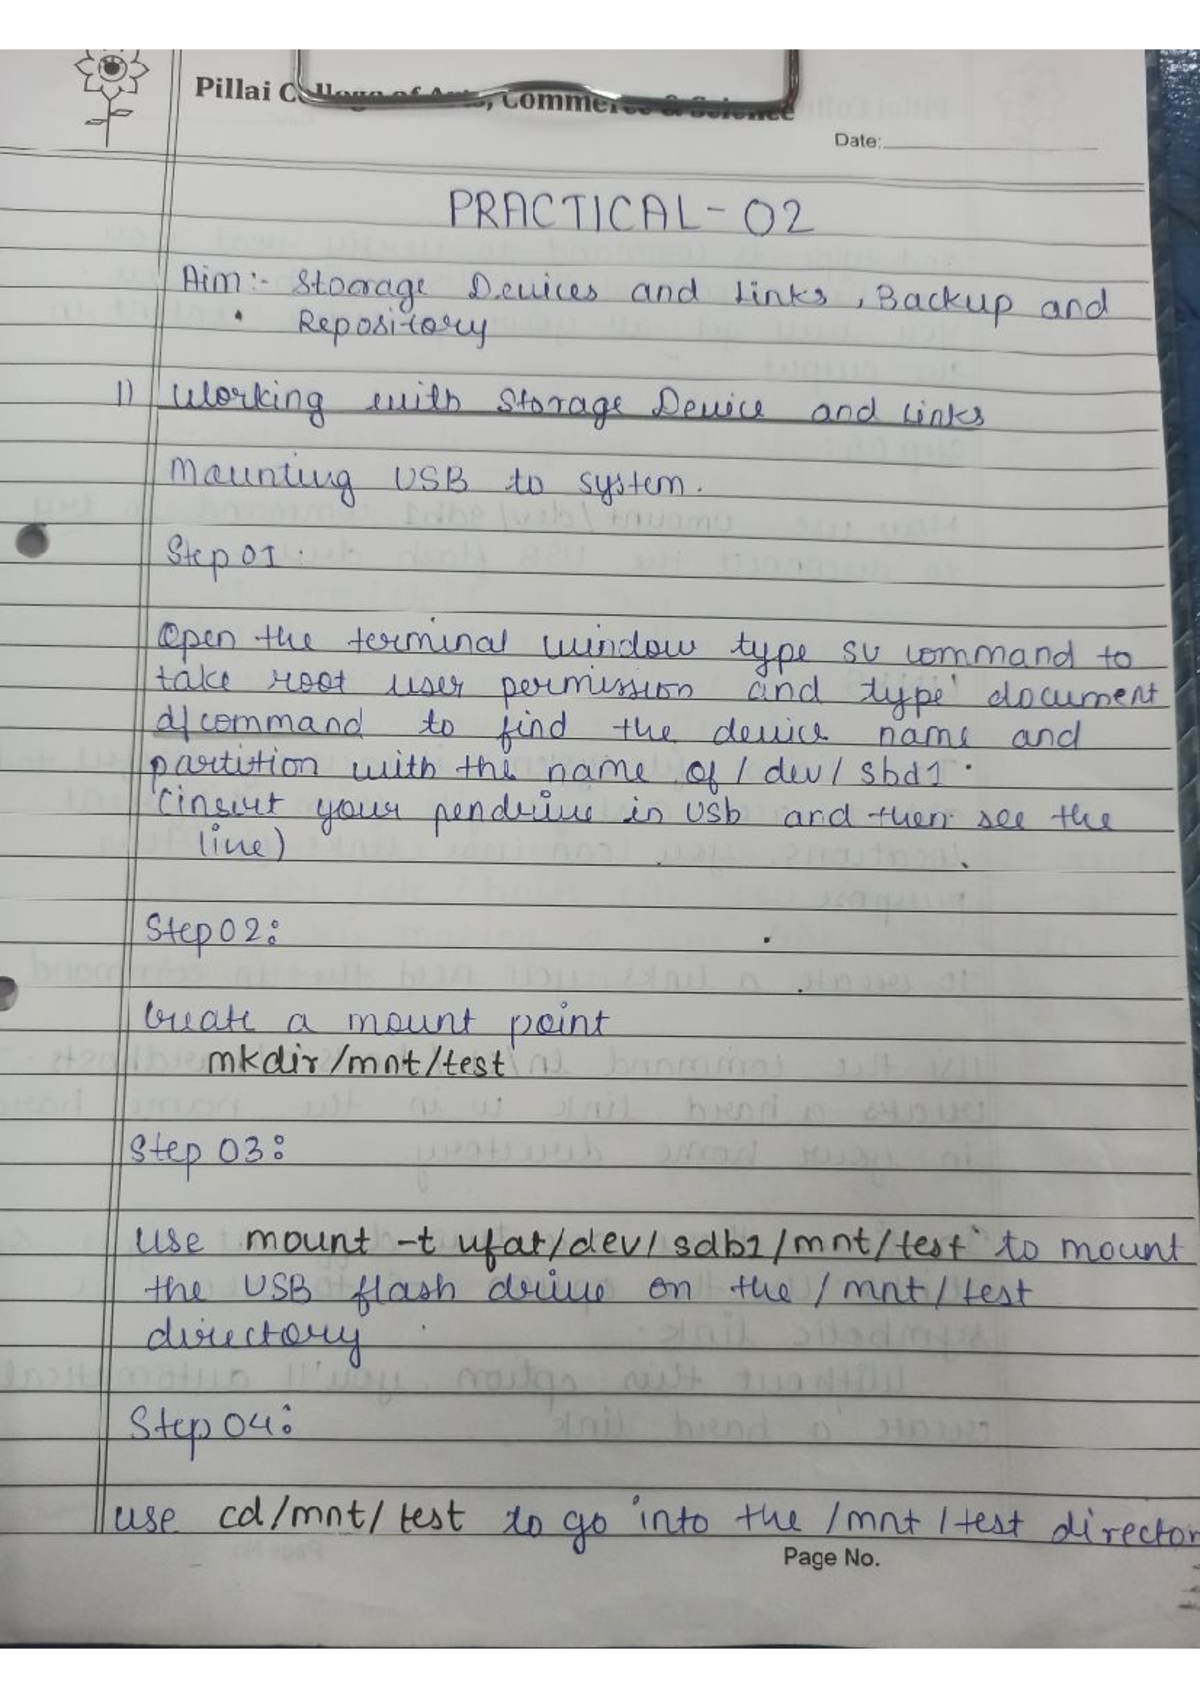 Pillai College of Arts, Commerce & Science
Date:
PRACTICAL-02
Aim:- Storage Devices and Links, Backup and
Repository
1) Working with Storage Device and Links
Maunting USB to system.
Step 01:
Open the terminal window type su command to
take root user permission and type document
df command to find the device name and
partition with the name of /dev/sbd1.
(insert your pendrive in usb and then see the
line)
Step 02:
Create a mount point
mkdir/mnt/test
Step 03:
Use mount -t vfat/dev/sdb1/mnt/test to mount
the USB flash drive on the /mnt/test
directory
Step 04:
use cd/mnt/test to go into the /mnt/test director
Page No.